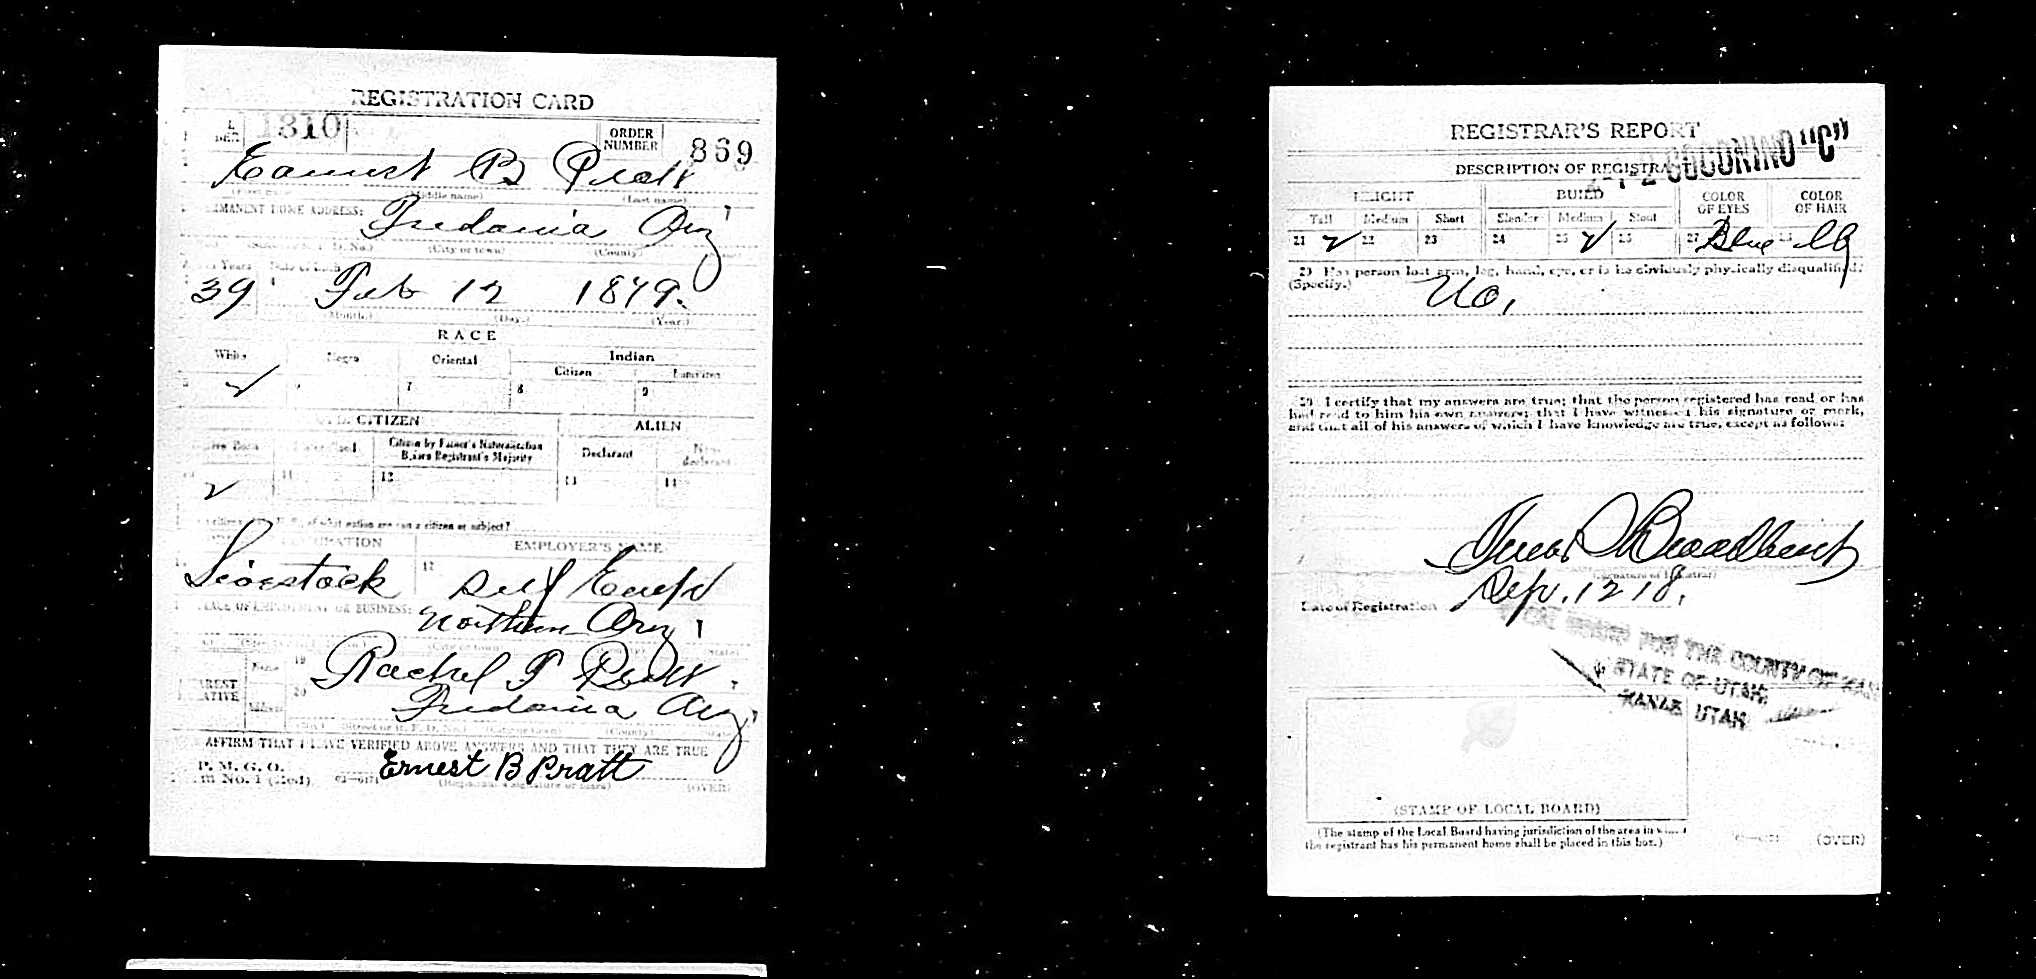 REGISTRATION CARD
1310 ORDER NUMBER 869
Earnest B Pratt
(Middle name) (Last name)
HOME ADDRESS: Fredonia Ariz
(City or town) (County)
39 Feb 12 1879.
(Month.) (Day.) (Year.)
RACE
White Negro Oriental Indian
Citizen
7 8 9
CITIZEN ALIEN
Citizen by Father's Naturalization Before Registrant's Majority Declarant
11 12 13 14
of what nation are you a citizen or subject?
OCCUPATION EMPLOYER'S NAME
Livestock 17 Self Emp'd
PLACE OF EMPLOYMENT OR BUSINESS: Northern Ariz
Name 19 Rachel T Pratt.
20 Fredonia Ariz.
AFFIRM THAT I HAVE VERIFIED ABOVE ANSWERS AND THAT THEY ARE TRUE
P. M. G. O.
Form No. 1 (Red) Ernest B Pratt
(Registrant's signature or mark) (OVER)
REGISTRAR'S REPORT
COCONINO "C"
DESCRIPTION OF REGISTRA
HEIGHT BUILD COLOR OF EYES COLOR OF HAIR
Tall Medium Short Slender Medium Stout
21 22 23 24 25 26 27 Blue 28
29 Has person lost arm, leg, hand, eye, or is he obviously physically disqualified?
(Specify.) No.
30 I certify that my answers are true; that the person registered has read or has
had read to him his own answers; that I have witnessed his signature or mark,
and that all of his answers of which I have knowledge are true, except as follows:
Broadbent
(Signature of Registrar)
Date of Registration Sep. 12 18.
FOR THE COUNTY OF KANE
STATE OF UTAH
KANAB UTAH
(STAMP OF LOCAL BOARD)
(The stamp of the Local Board having jurisdiction of the area in which
the registrant has his permanent home shall be placed in this box.)
(OVER)